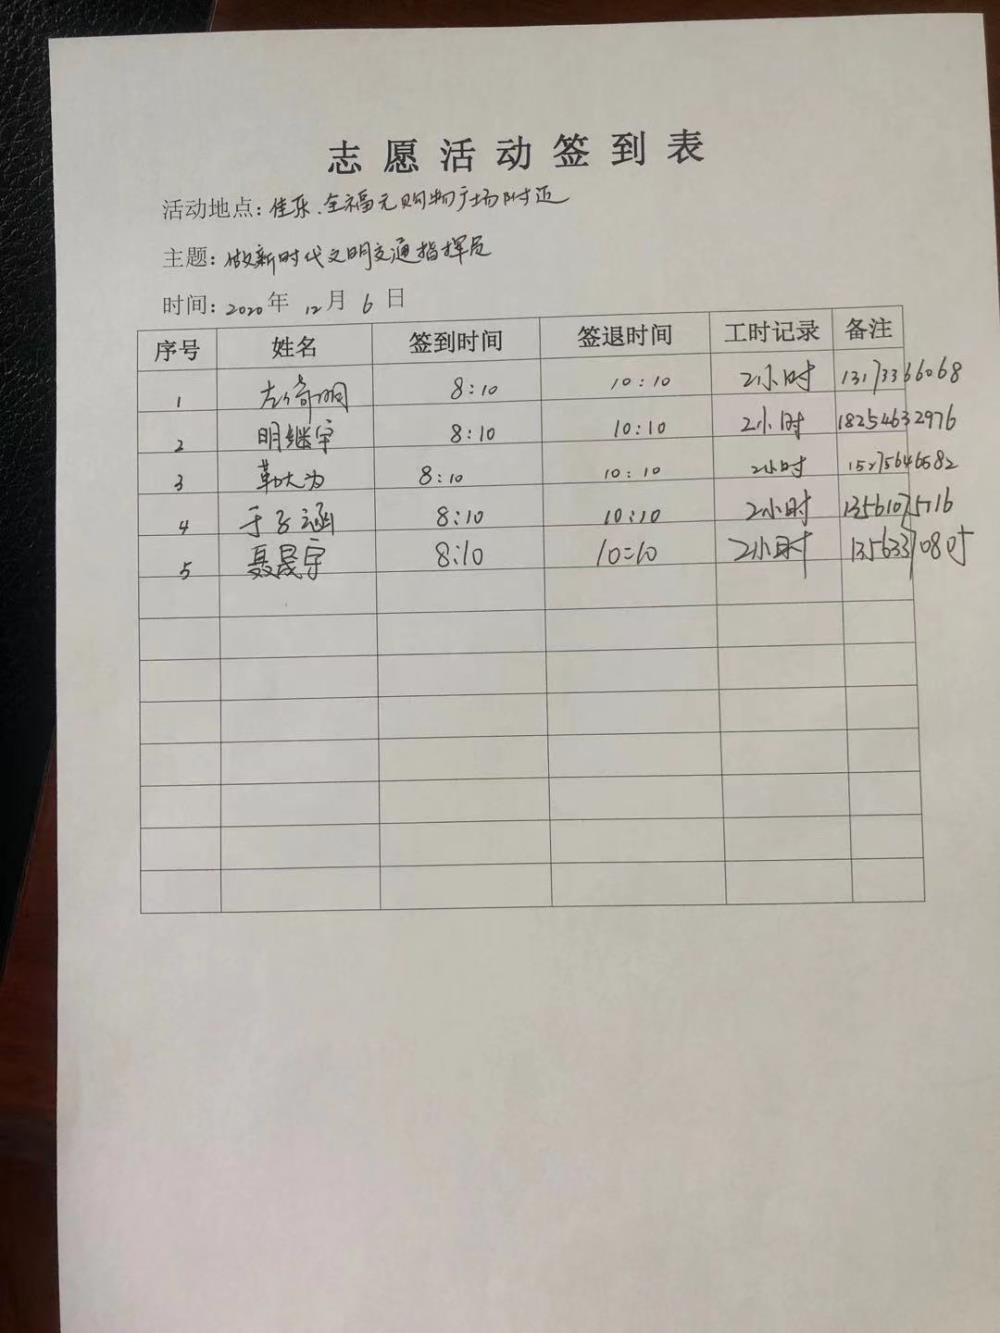 志愿活动签到表
活动地点: 佳乐、全福元购物广场附近
主题: 做新时代文明交通指挥员
时间: 2020年 12月 6日
序号 姓名 签到时间 签退时间 工时记录 备注
1 左倚明 8:10 10:10 2小时 13173366068
2 明继宇 8:10 10:10 2小时 18254632976
3 大为 8:10 10:10 2小时
4 于子涵 8:10 10:10 2小时
5 聂晟宇 8:10 10:10 2小时